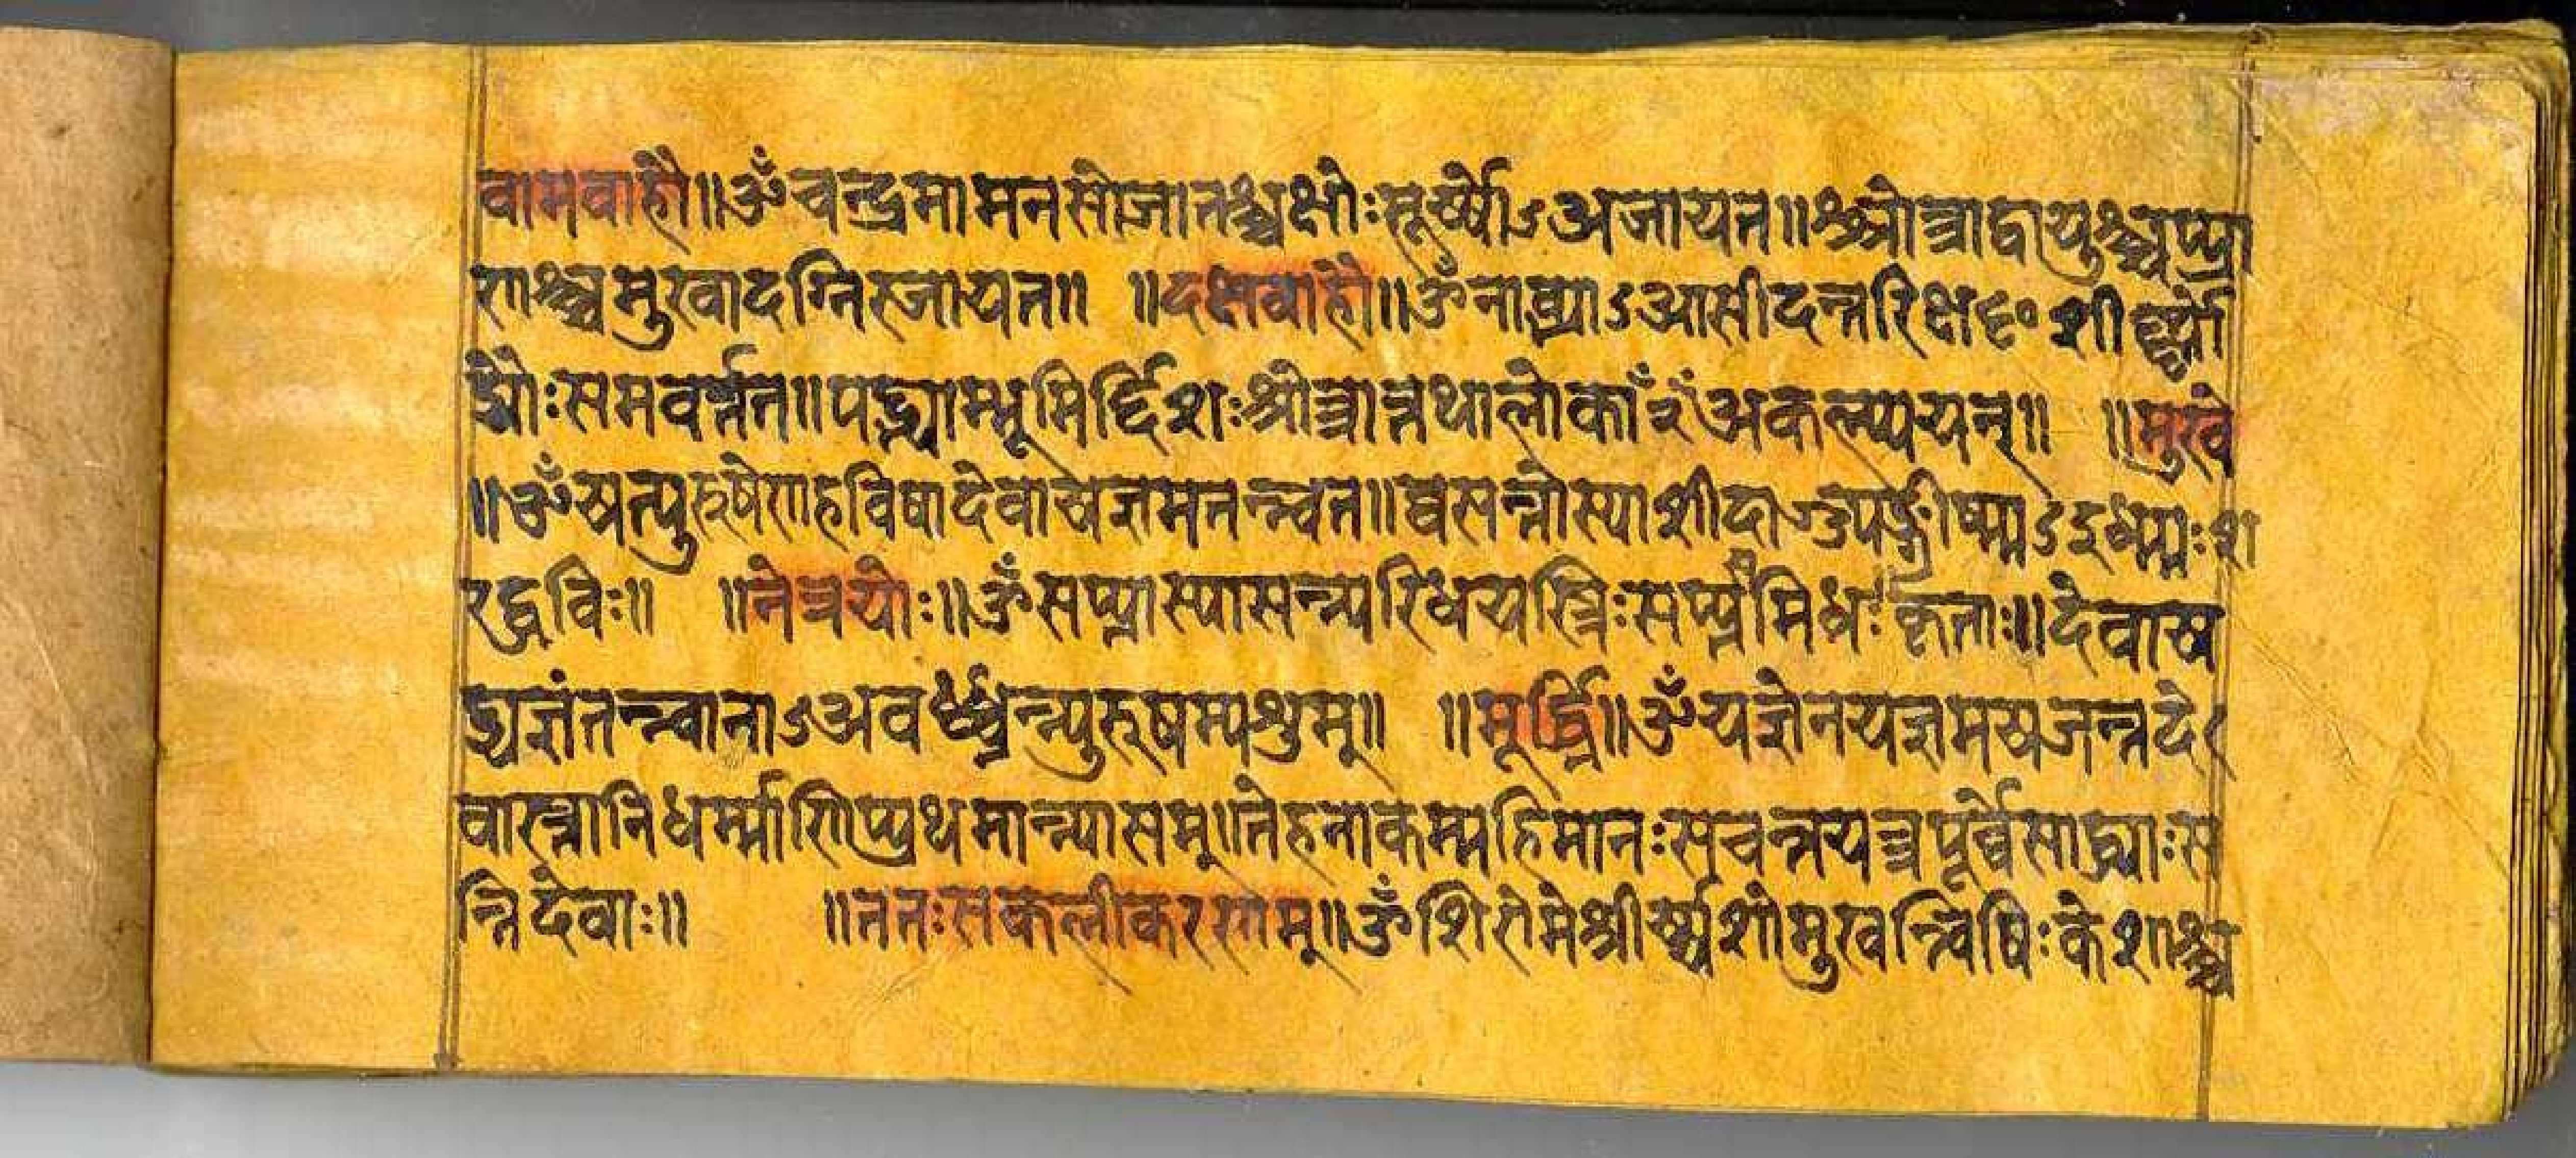 वामवाहौ॥ॐ चन्द्रमामनसोजातश्च्चक्षोःसूर्य्योऽअजायत॥श्श्रोत्राद्वायुश्च्चप्प्रा
णश्च्चमुखादग्निरजायत॥ ॥दक्षवाहौ॥ॐ नाब्भ्याऽआसीदन्तरिक्षꣳ शीर्ष्णो
द्यौःसमवर्त्तत॥पद्भ्याम्भूमिर्द्दिशःश्रोत्त्रात्तथालोकाँ२ँअकल्प्पयन्॥ ॥मुखे
॥ॐ यत्पुरुषेणहविषादेवायज्ञमतन्न्वत॥वसन्तोस्याशीदाज्यङ्ग्रीष्म्मऽइध्म्मःश
रद्धविः॥ ॥नेत्रयोः॥ॐ सप्प्तास्यासन्न्परिधयस्त्रिःसप्प्तसमिधःकृताः॥देवाय
द्यज्ञंतन्न्वानाऽअवध्नन्न्पुरुषम्पशुम्॥ ॥मूर्द्ध्नि॥ॐ यज्ञेनयज्ञमयजन्तदे
वास्तानिधर्म्माणिप्प्रथमान्न्यासम्॥तेहनाकम्महिमानःसचन्तयत्त्रपूर्व्वेसाद्ध्याःस
न्तिदेवाः॥ ॥ततःसकलीकरणम्॥ॐ शिरोमेश्रीर्य्यशोमुखन्त्विषिःकेशाश्च्च